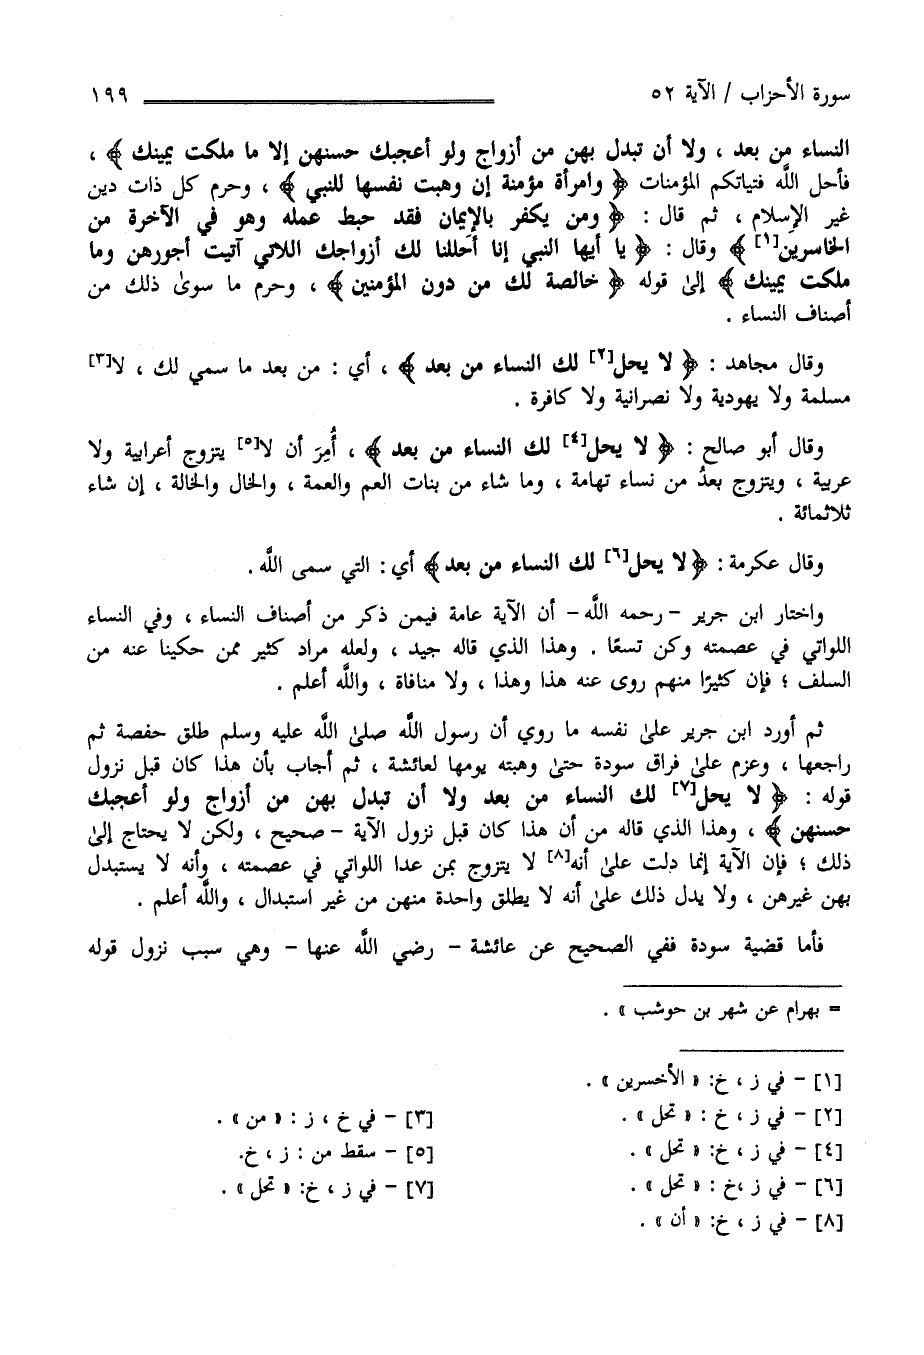 سورة الأحزاب / الآية ٥٢ ١٩٩
النساء من بعد ، ولا أن تبدل بهن من أزواج ولو أعجبك حسنهن إلا ما ملكت يمينك ﴾ ،
فأحل اللَّه فتياتكم المؤمنات ﴿ وامرأة مؤمنة إن وهبت نفسها للنبي ﴾ ، وحرم كل ذات دين
غير الإسلام ، ثم قال : ﴿ ومن يكفر بالإيمان فقد حبط عمله وهو في الآخرة من
الخاسرين[١] ﴾ وقال : ﴿ يا أيها النبي إنا أحللنا لك أزواجك اللاتي آتيت أجورهن وما
ملكت يمينك ﴾ إلىٰ قوله ﴿ خالصة لك من دون المؤمنين ﴾ ، وحرم ما سوىٰ ذلك من
أصناف النساء .
وقال مجاهد : ﴿ لا يحل[٢] لك النساء من بعد ﴾ ، أي : من بعد ما سمي لك ، لا[٣]
مسلمة ولا يهودية ولا نصرانية ولا كافرة .
وقال أبو صالح : ﴿ لا يحل[٤] لك النساء من بعد ﴾ ، أُمِرَ أن لا[٥] يتزوج أعرابية ولا
عربية ، ويتزوج بعدُ من نساء تهامة ، وما شاء من بنات العم والعمة ، والخال والخالة ، إن شاء
ثلاثمائة .
وقال عكرمة : ﴿ لا يحل[٦] لك النساء من بعد ﴾ أي : التي سمى اللَّه .
واختار ابن جرير – رحمه اللَّه – أن الآية عامة فيمن ذكر من أصناف النساء ، وفي النساء
اللواتي في عصمته وكن تسعًا . وهذا الذي قاله جيد ، ولعله مراد كثير ممن حكينا عنه من
السلف ؛ فإن كثيرًا منهم روى عنه هذا وهذا ، ولا منافاة ، واللَّه أعلم .
ثم أورد ابن جرير علىٰ نفسه ما روي أن رسول اللَّه صلىٰ اللَّه عليه وسلم طلق حفصة ثم
راجعها ، وعزم علىٰ فراق سودة حتىٰ وهبته يومها لعائشة ، ثم أجاب بأن هذا كان قبل نزول
قوله : ﴿ لا يحل[٧] لك النساء من بعد ولا أن تبدل بهن من أزواج ولو أعجبك
حسنهن ﴾ ، وهذا الذي قاله من أن هذا كان قبل نزول الآية – صحيح ، ولكن لا يحتاج إلىٰ
ذلك ؛ فإن الآية إنما دلت علىٰ أنه[٨] لا يتزوج بمن عدا اللواتي في عصمته ، وأنه لا يستبدل
بهن غيرهن ، ولا يدل ذلك علىٰ أنه لا يطلق واحدة منهن من غير استبدال ، واللَّه أعلم .
فأما قضية سودة ففي الصحيح عن عائشة – رضي اللَّه عنها – وهي سبب نزول قوله
= بهرام عن شهر بن حوشب » .
[١] – في ز ، خ: « الأخسرين » .
[٢] – في ز ، خ : « تحل » . [٣] – في خ ، ز : « من » .
[٤] – في ز ، خ: « تحل » . [٥] – سقط من : ز ، خ.
[٦] – في ز ،خ : « تحل » . [٧] – في ز ، خ: « تحل » .
[٨] – في ز ، خ: « أن » .